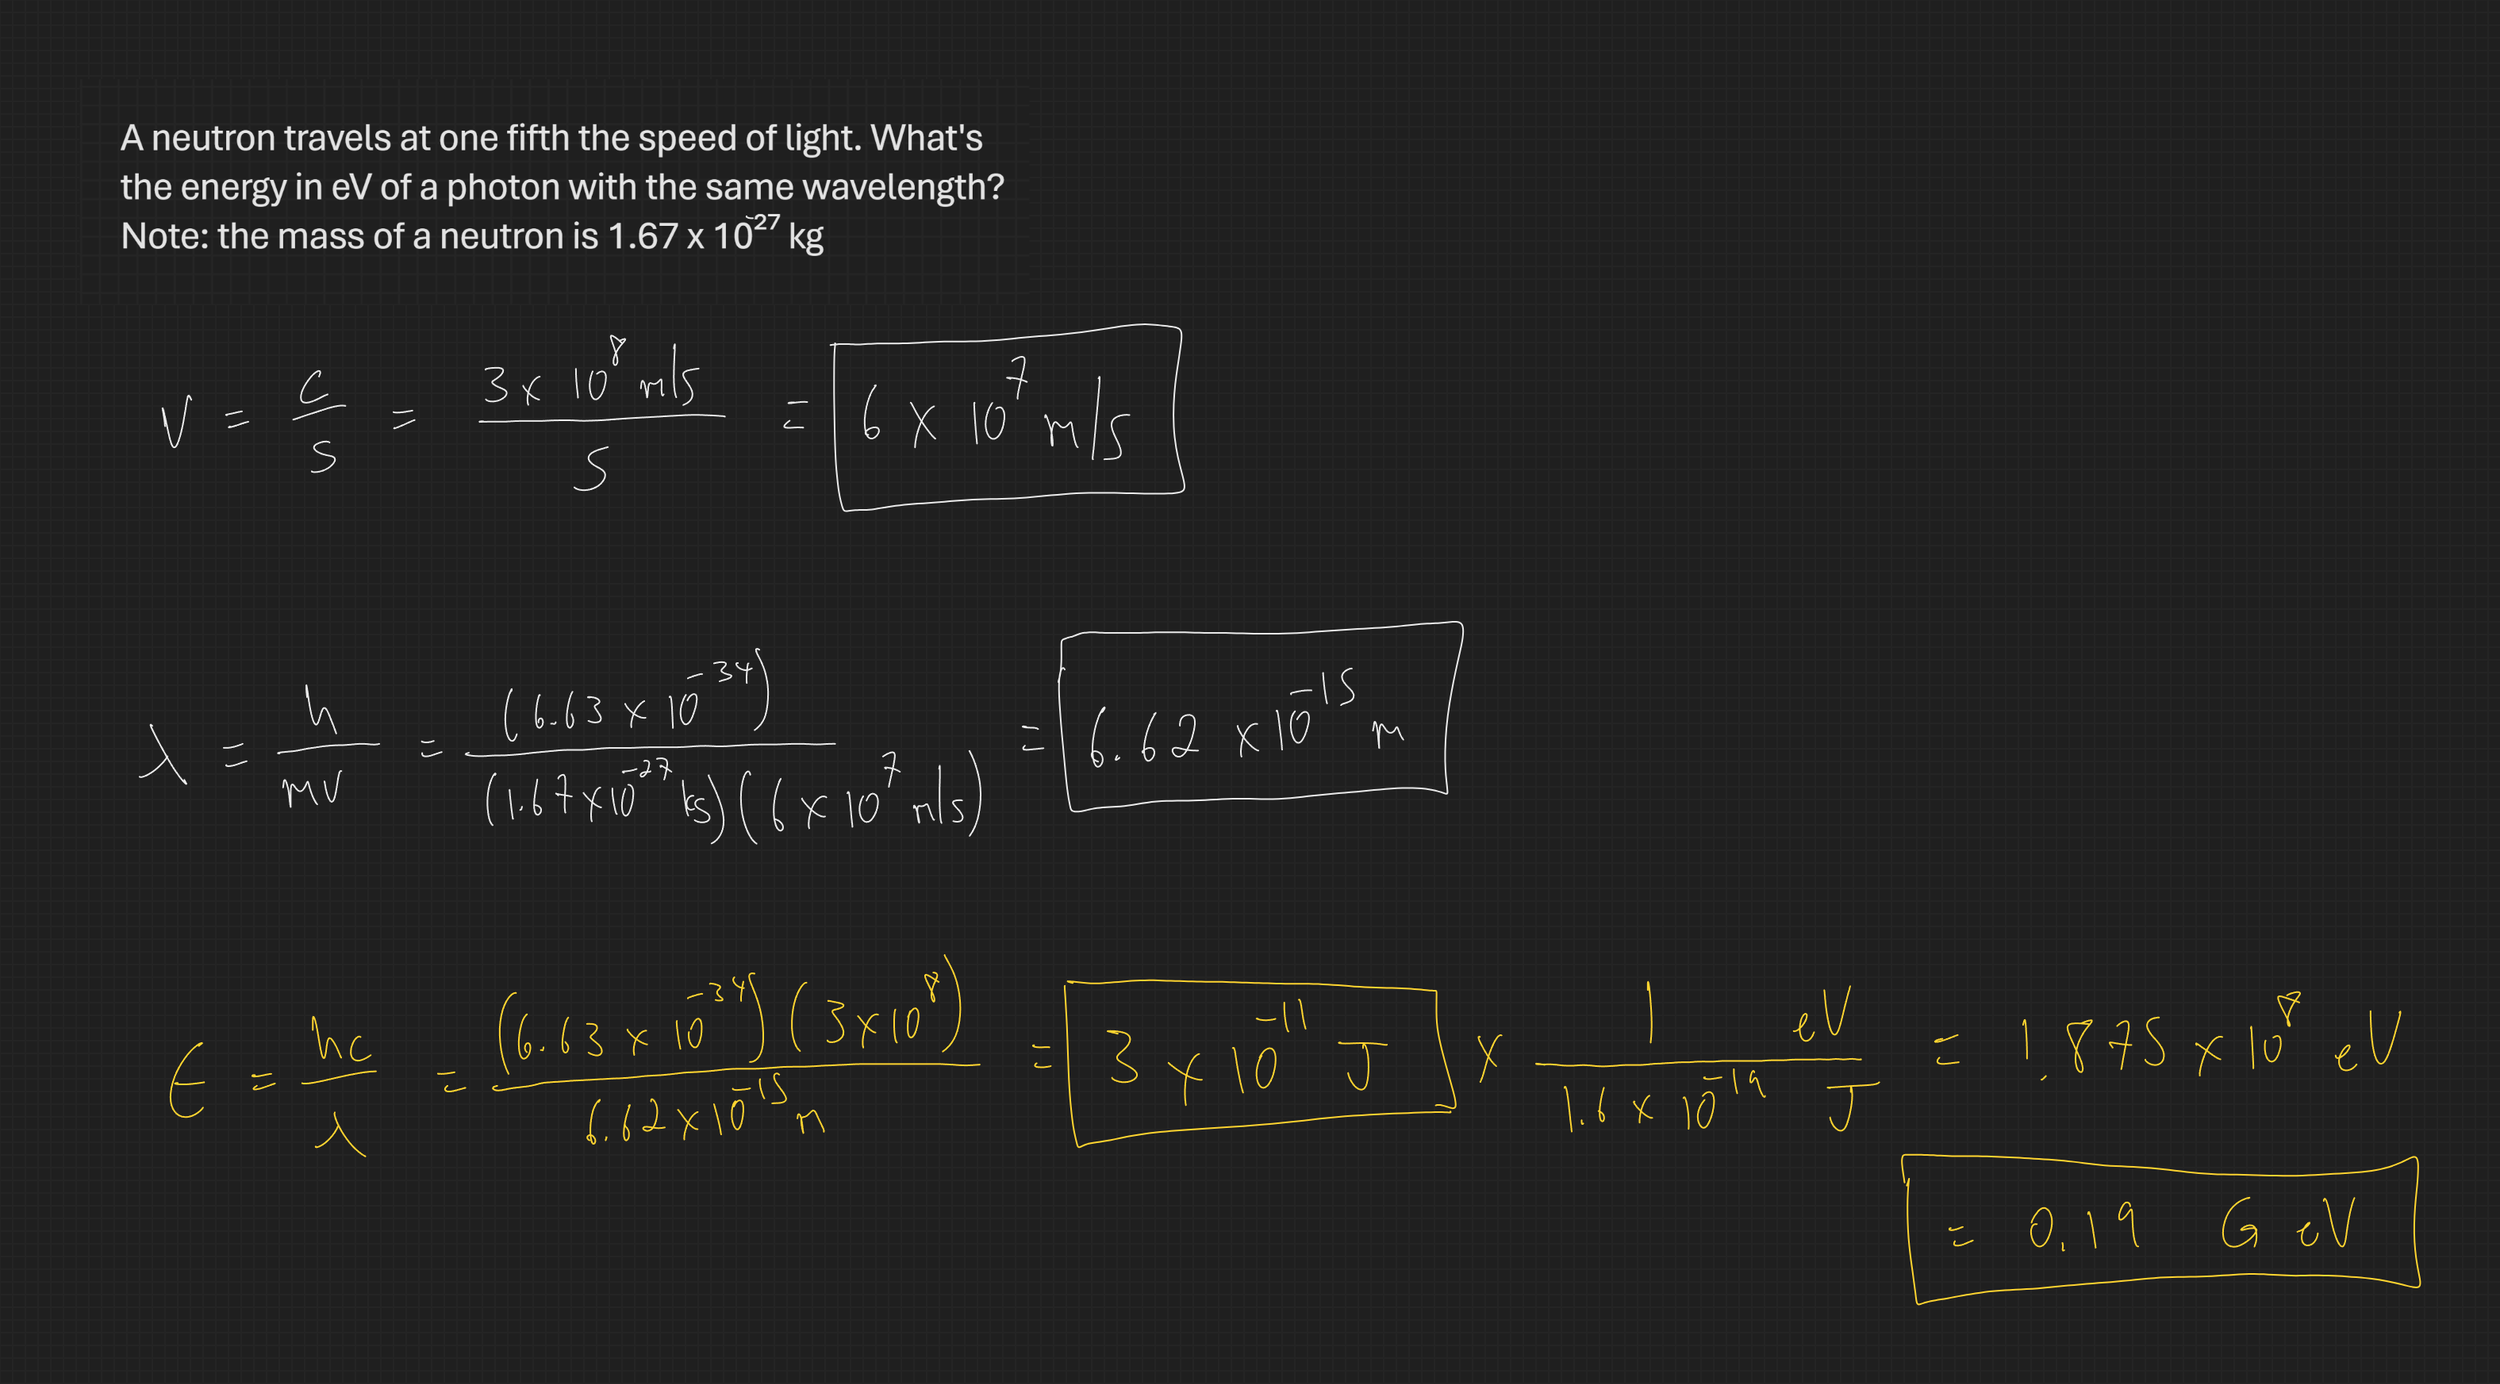 A neutron travels at one fifth the speed of light. What's
the energy in eV of a photon with the same wavelength?
Note: the mass of a neutron is 1.67 x 10⁻²⁷ kg
V = c/5 = (3 x 10⁸ m/s)/5 = 6 x 10⁷ m/s
λ = h/mv = (6.63 x 10⁻³⁴)/((1.67 x 10⁻²⁷ kg)(6 x 10⁷ m/s)) = 6.62 x 10⁻¹⁵ m
E = hc/λ = ((6.63 x 10⁻³⁴)(3 x 10⁸))/(6.62 x 10⁻¹⁵ m) = 3 x 10⁻¹¹ J x (1 eV)/(1.6 x 10⁻¹⁹ J) = 1.875 x 10⁸ eV
= 0.19 GeV